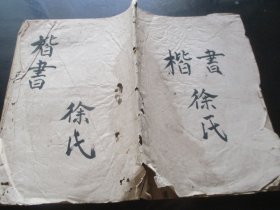 楷書
徐氏
楷書
徐氏